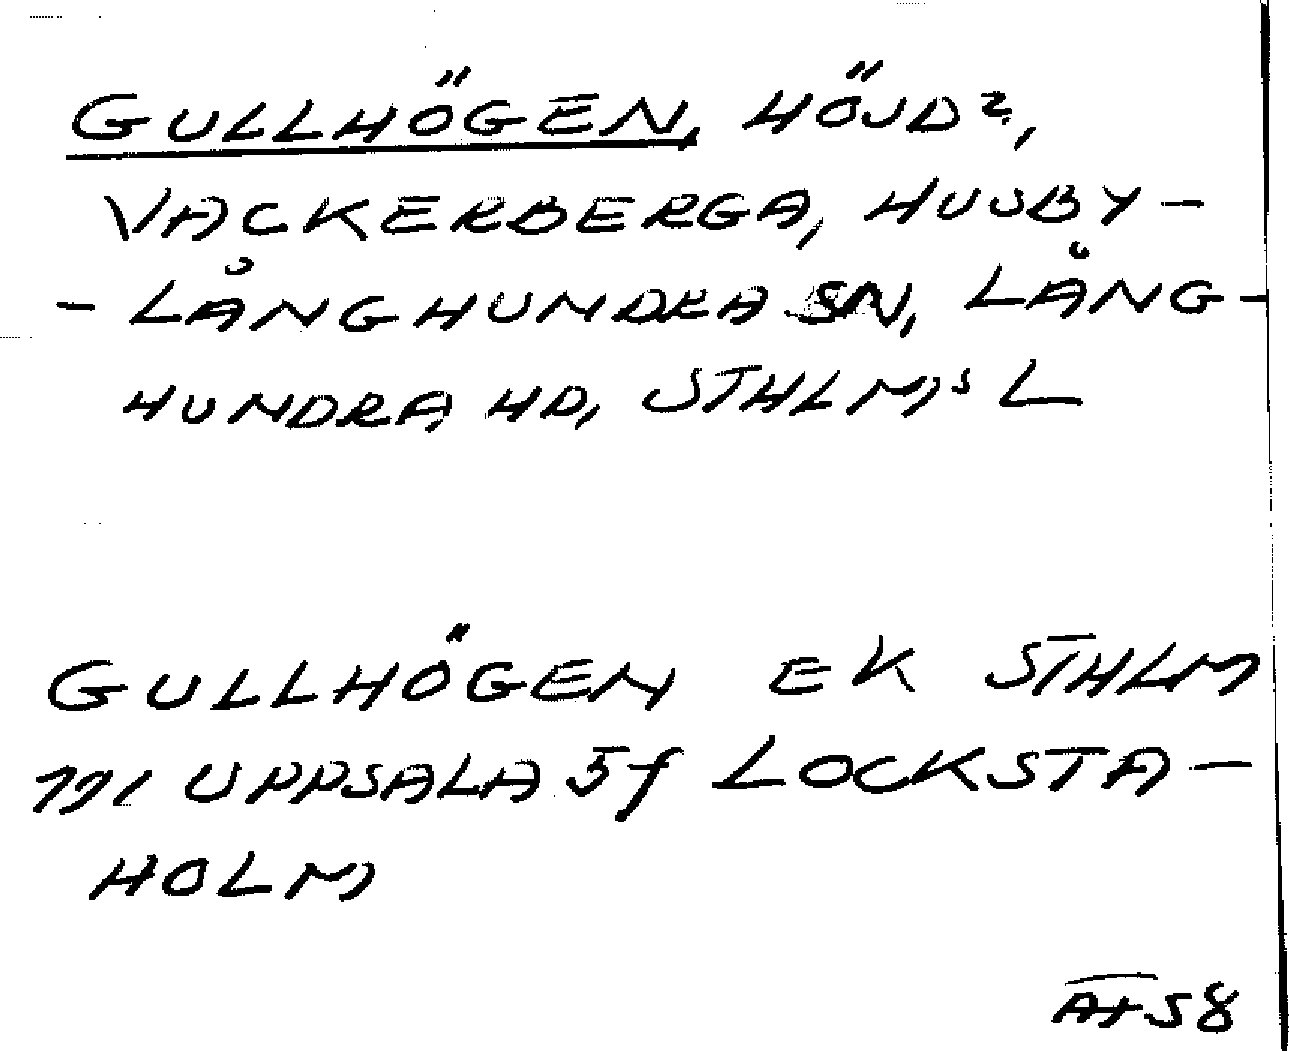 GULLHÖGEN, HÖJD?,
VACKERBERGA, HUSBY-
-LÅNGHUNDRA SN, LÅNG-
HUNDRA HD, STHLMS L
GULLHÖGEN EK STHLM
111 UPPSALA 5f LOCKSTA-
HOLM
58